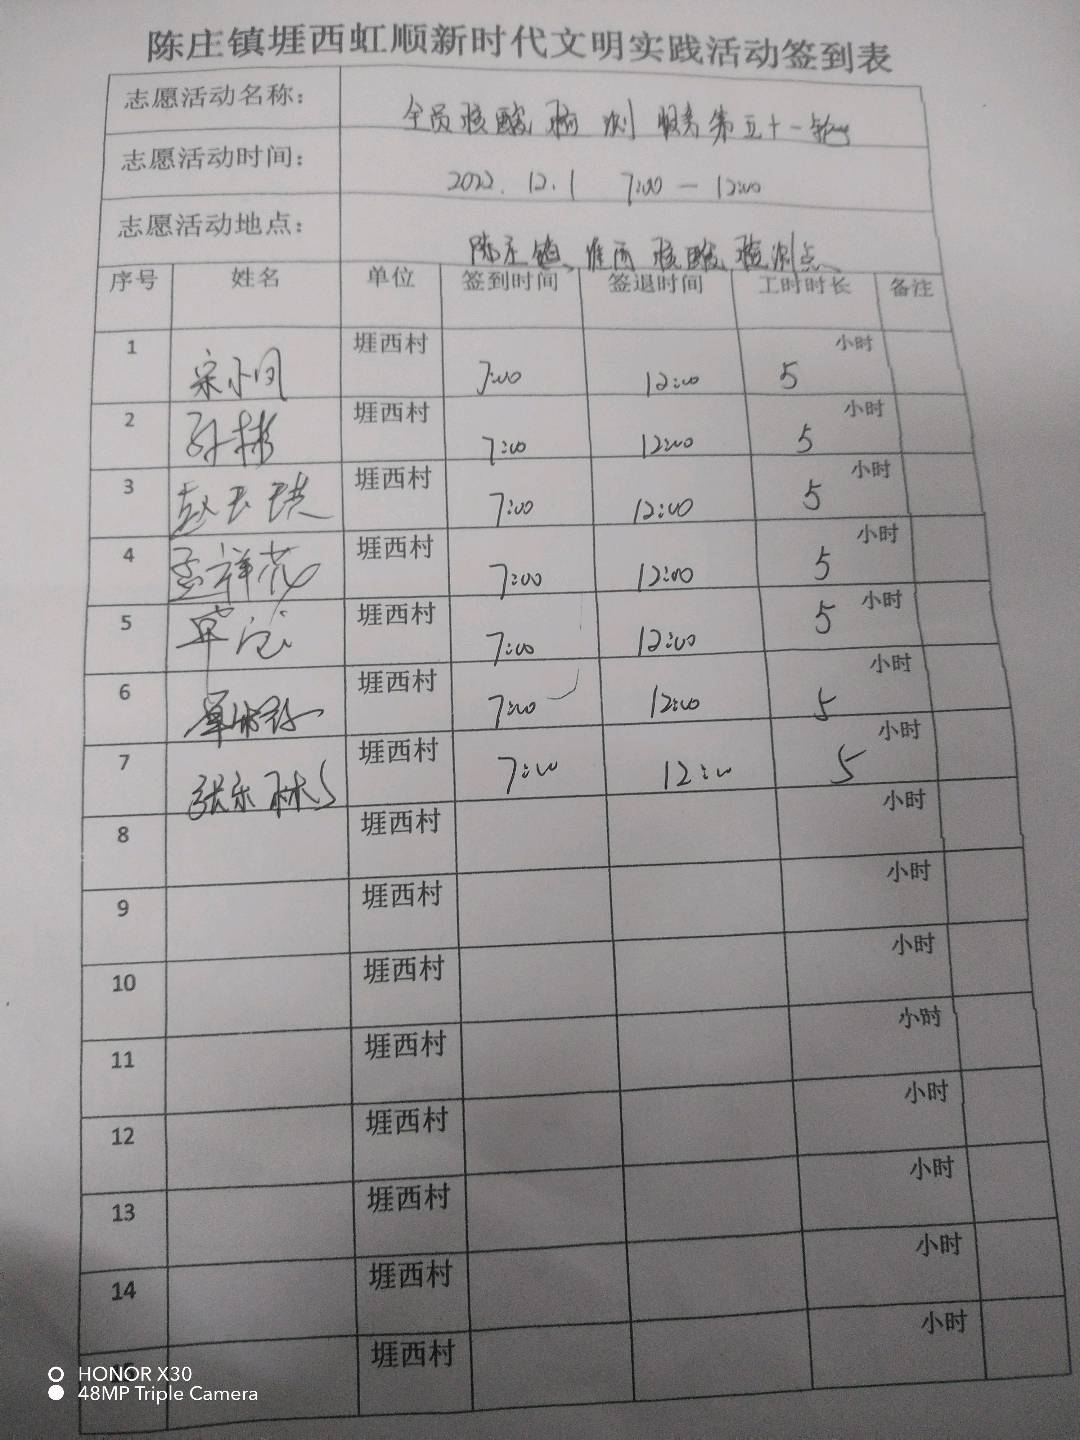 陈庄镇堐西虹顺新时代文明实践活动签到表
志愿活动名称： 全员核酸检测服务第五十一轮
志愿活动时间： 2022.12.1 7:00—12:00
志愿活动地点： 陈庄镇、堐西核酸检测点
序号 姓名 单位 签到时间 签退时间 工时时长 备注
1 堐西村 7:00 12:00 5 小时
2 孙彬 堐西村 7:00 12:00 5 小时
3 堐西村 7:00 12:00 5 小时
4 孟祥花 堐西村 7:00 12:00 5 小时
5 堐西村 7:00 12:00 5 小时
6 堐西村 7:00 12:00 5 小时
7 堐西村 7:00 12:00 5 小时
8 堐西村 小时
9 堐西村 小时
10 堐西村 小时
11 堐西村 小时
12 堐西村 小时
13 堐西村 小时
14 堐西村 小时
15 堐西村 小时
HONOR X30
48MP Triple Camera